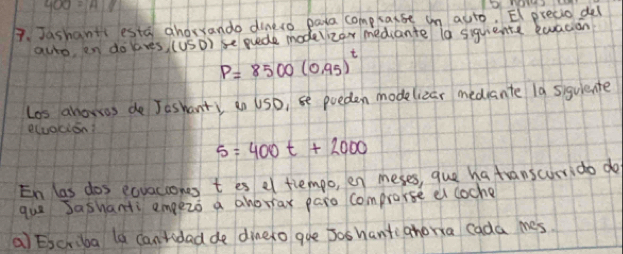 400 = A
7. Jashanti está ahorrando dinero para comprarse un auto. El precio del
auto, en dolares, (USD) se puede modelizar mediante la siguiente ecuación
P = 8500 (0,95)^t
Los ahorros de Jashanti, en USD, se pueden modelizar mediante la siguiente
ecuación:
S = 400 t + 2000
En las dos ecuaciones t es el tiempo, en meses, que ha transcurrido de
que Jashanti empezó a ahorrar para comprarse el coche
a) Escriba la cantidad de dinero que Jashanti ahorra cada mes.